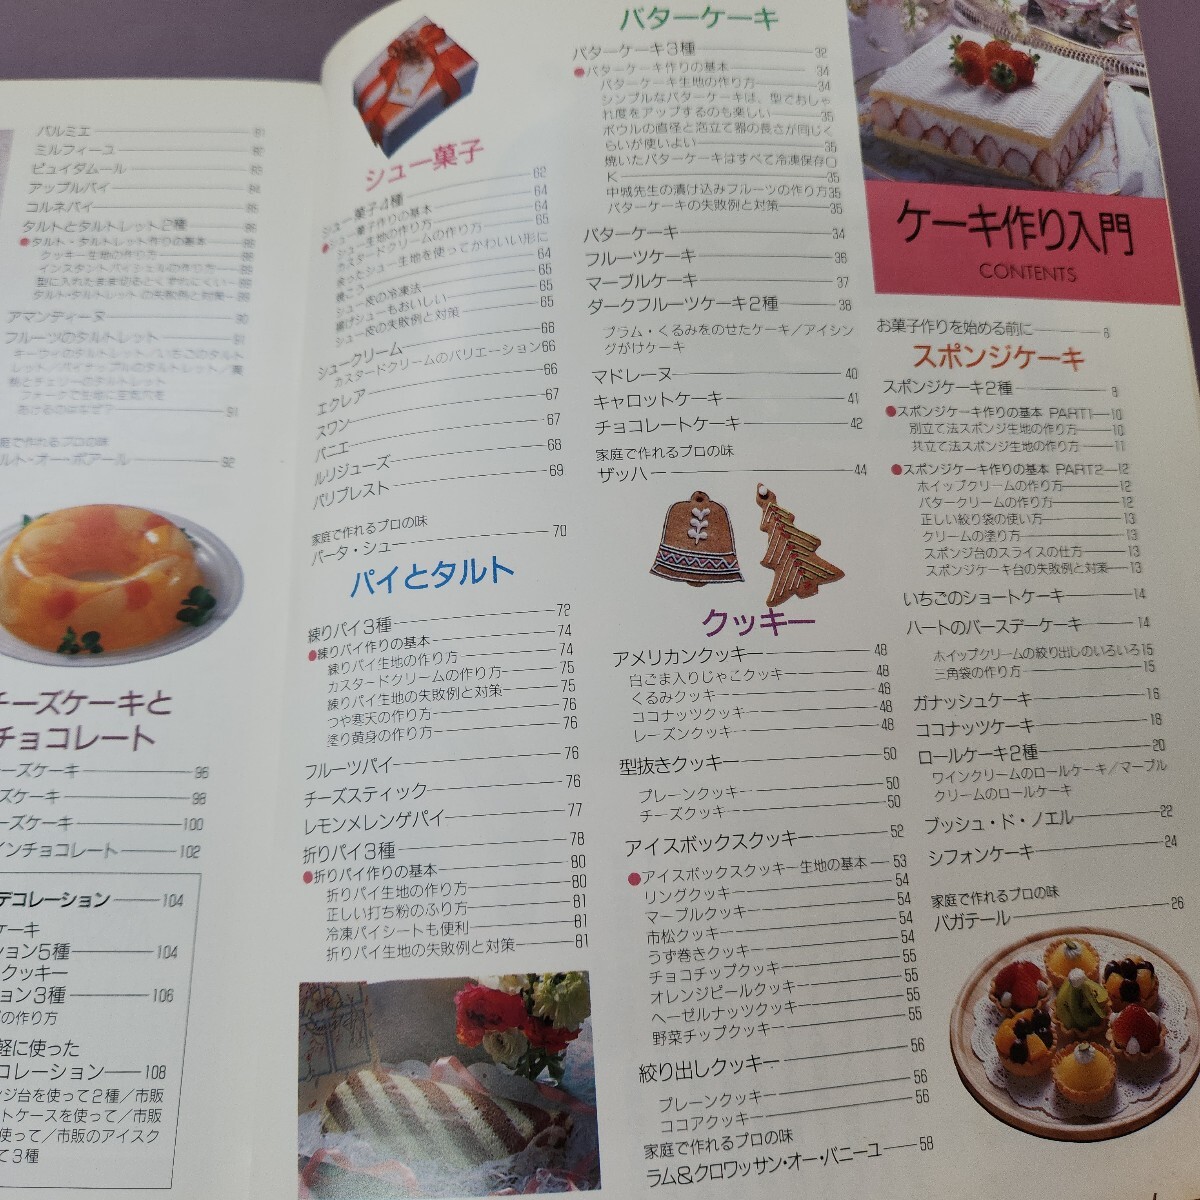 ケーキ作り入門
CONTENTS
お菓子作りを始める前に 6
スポンジケーキ
スポンジケーキ2種 8
●スポンジケーキ作りの基本 PART1 10
別立て法スポンジ生地の作り方 10
共立て法スポンジ生地の作り方 11
●スポンジケーキ作りの基本 PART2 12
ホイップクリームの作り方 12
バタークリームの作り方 12
正しい絞り袋の使い方 13
クリームの塗り方 13
スポンジ台のスライスの仕方 13
スポンジケーキ台の失敗例と対策 13
いちごのショートケーキ 14
ハートのバースデーケーキ 14
ホイップクリームの絞り出しのいろいろ 15
三角袋の作り方 15
ガナッシュケーキ 16
ココナッツケーキ 18
ロールケーキ2種 20
ワインクリームのロールケーキ/マーブル
クリームのロールケーキ
ブッシュ・ド・ノエル 22
シフォンケーキ 24
家庭で作れるプロの味
バガテール 26
バターケーキ
バターケーキ3種 32
●バターケーキ作りの基本 34
バターケーキ生地の作り方 34
シンプルなバターケーキは、型でおしゃ
れ度をアップするのも楽しい 35
ボウルの直径と泡立て器の長さが同じく
らいが使いよい 35
焼いたバターケーキはすべて冷凍保存O
K 35
中城先生の漬け込みフルーツの作り方 35
バターケーキの失敗例と対策 35
バターケーキ 34
フルーツケーキ 36
マーブルケーキ 37
ダークフルーツケーキ2種 38
プラム・くるみをのせたケーキ/アイシン
グがけケーキ
マドレーヌ 40
キャロットケーキ 41
チョコレートケーキ 42
家庭で作れるプロの味
ザッハー 44
クッキー
アメリカンクッキー 48
白ごま入りじゃこクッキー 48
くるみクッキー 48
ココナッツクッキー 48
レーズンクッキー 48
型抜きクッキー 50
プレーンクッキー 50
チーズクッキー 50
アイスボックスクッキー 52
●アイスボックスクッキー生地の基本 53
リングクッキー 54
マーブルクッキー 54
市松クッキー 54
うず巻きクッキー 54
チョコチップクッキー 55
オレンジピールクッキー 55
ヘーゼルナッツクッキー 55
野菜チップクッキー 55
絞り出しクッキー 56
プレーンクッキー 56
ココアクッキー 56
家庭で作れるプロの味
ラム&クロワッサン・オー・バニーユ 58
シュー菓子
シュー菓子4種 62
●シュー菓子作りの基本 64
シュー生地の作り方 64
カスタードクリームの作り方 65
余ったシュー生地を使ってかわいい形に
焼こう 64
シュー皮の冷凍法 65
揚げシューもおいしい 65
シュー皮の失敗例と対策 65
シュークリーム 66
カスタードクリームのバリエーション 66
エクレア 66
スワン 67
パニエ 67
ルリジューズ 68
パリブレスト 69
家庭で作れるプロの味
パータ・シュー 70
パイとタルト
練りパイ3種 72
●練りパイ作りの基本 74
練りパイ生地の作り方 74
カスタードクリームの作り方 75
練りパイ生地の失敗例と対策 75
つや寒天の作り方 76
塗り黄身の作り方 76
フルーツパイ 76
チーズスティック 76
レモンメレンゲパイ 77
折りパイ3種 78
●折りパイ作りの基本 80
折りパイ生地の作り方 80
正しい打ち粉のふり方 81
冷凍パイシートも便利 81
折りパイ生地の失敗例と対策 81
パルミエ
ミルフィーユ
ピュイダムール
アップルパイ
コルネパイ
タルトとタルトレット2種
●タルト・タルトレット作りの基本
クッキー生地の作り方
インスタントパイシェルの作り方
型に入れたまま切るとくずれにくい
タルト・タルトレットの失敗例と対策
アマンディーヌ 90
フルーツのタルトレット 91
キーウイのタルトレット/いちごのタルト
レット/パイナップルのタルトレット/
とチェリーのタルトレット
フォークで生地に空気穴を
あけるのはなぜ? 91
庭で作れるプロの味
ルト・オー・ポアール 92
チーズケーキと
チョコレート
ーズケーキ 96
ズケーキ 98
ーズケーキ 100
インチョコレート 102
デコレーション 104
ケーキ
ション5種 104
クッキー
ション3種 106
の作り方
軽に使った
コレーション 108
ンジ台を使って2種/市販
ットケースを使って/市販
使って/市販のアイスク
て3種